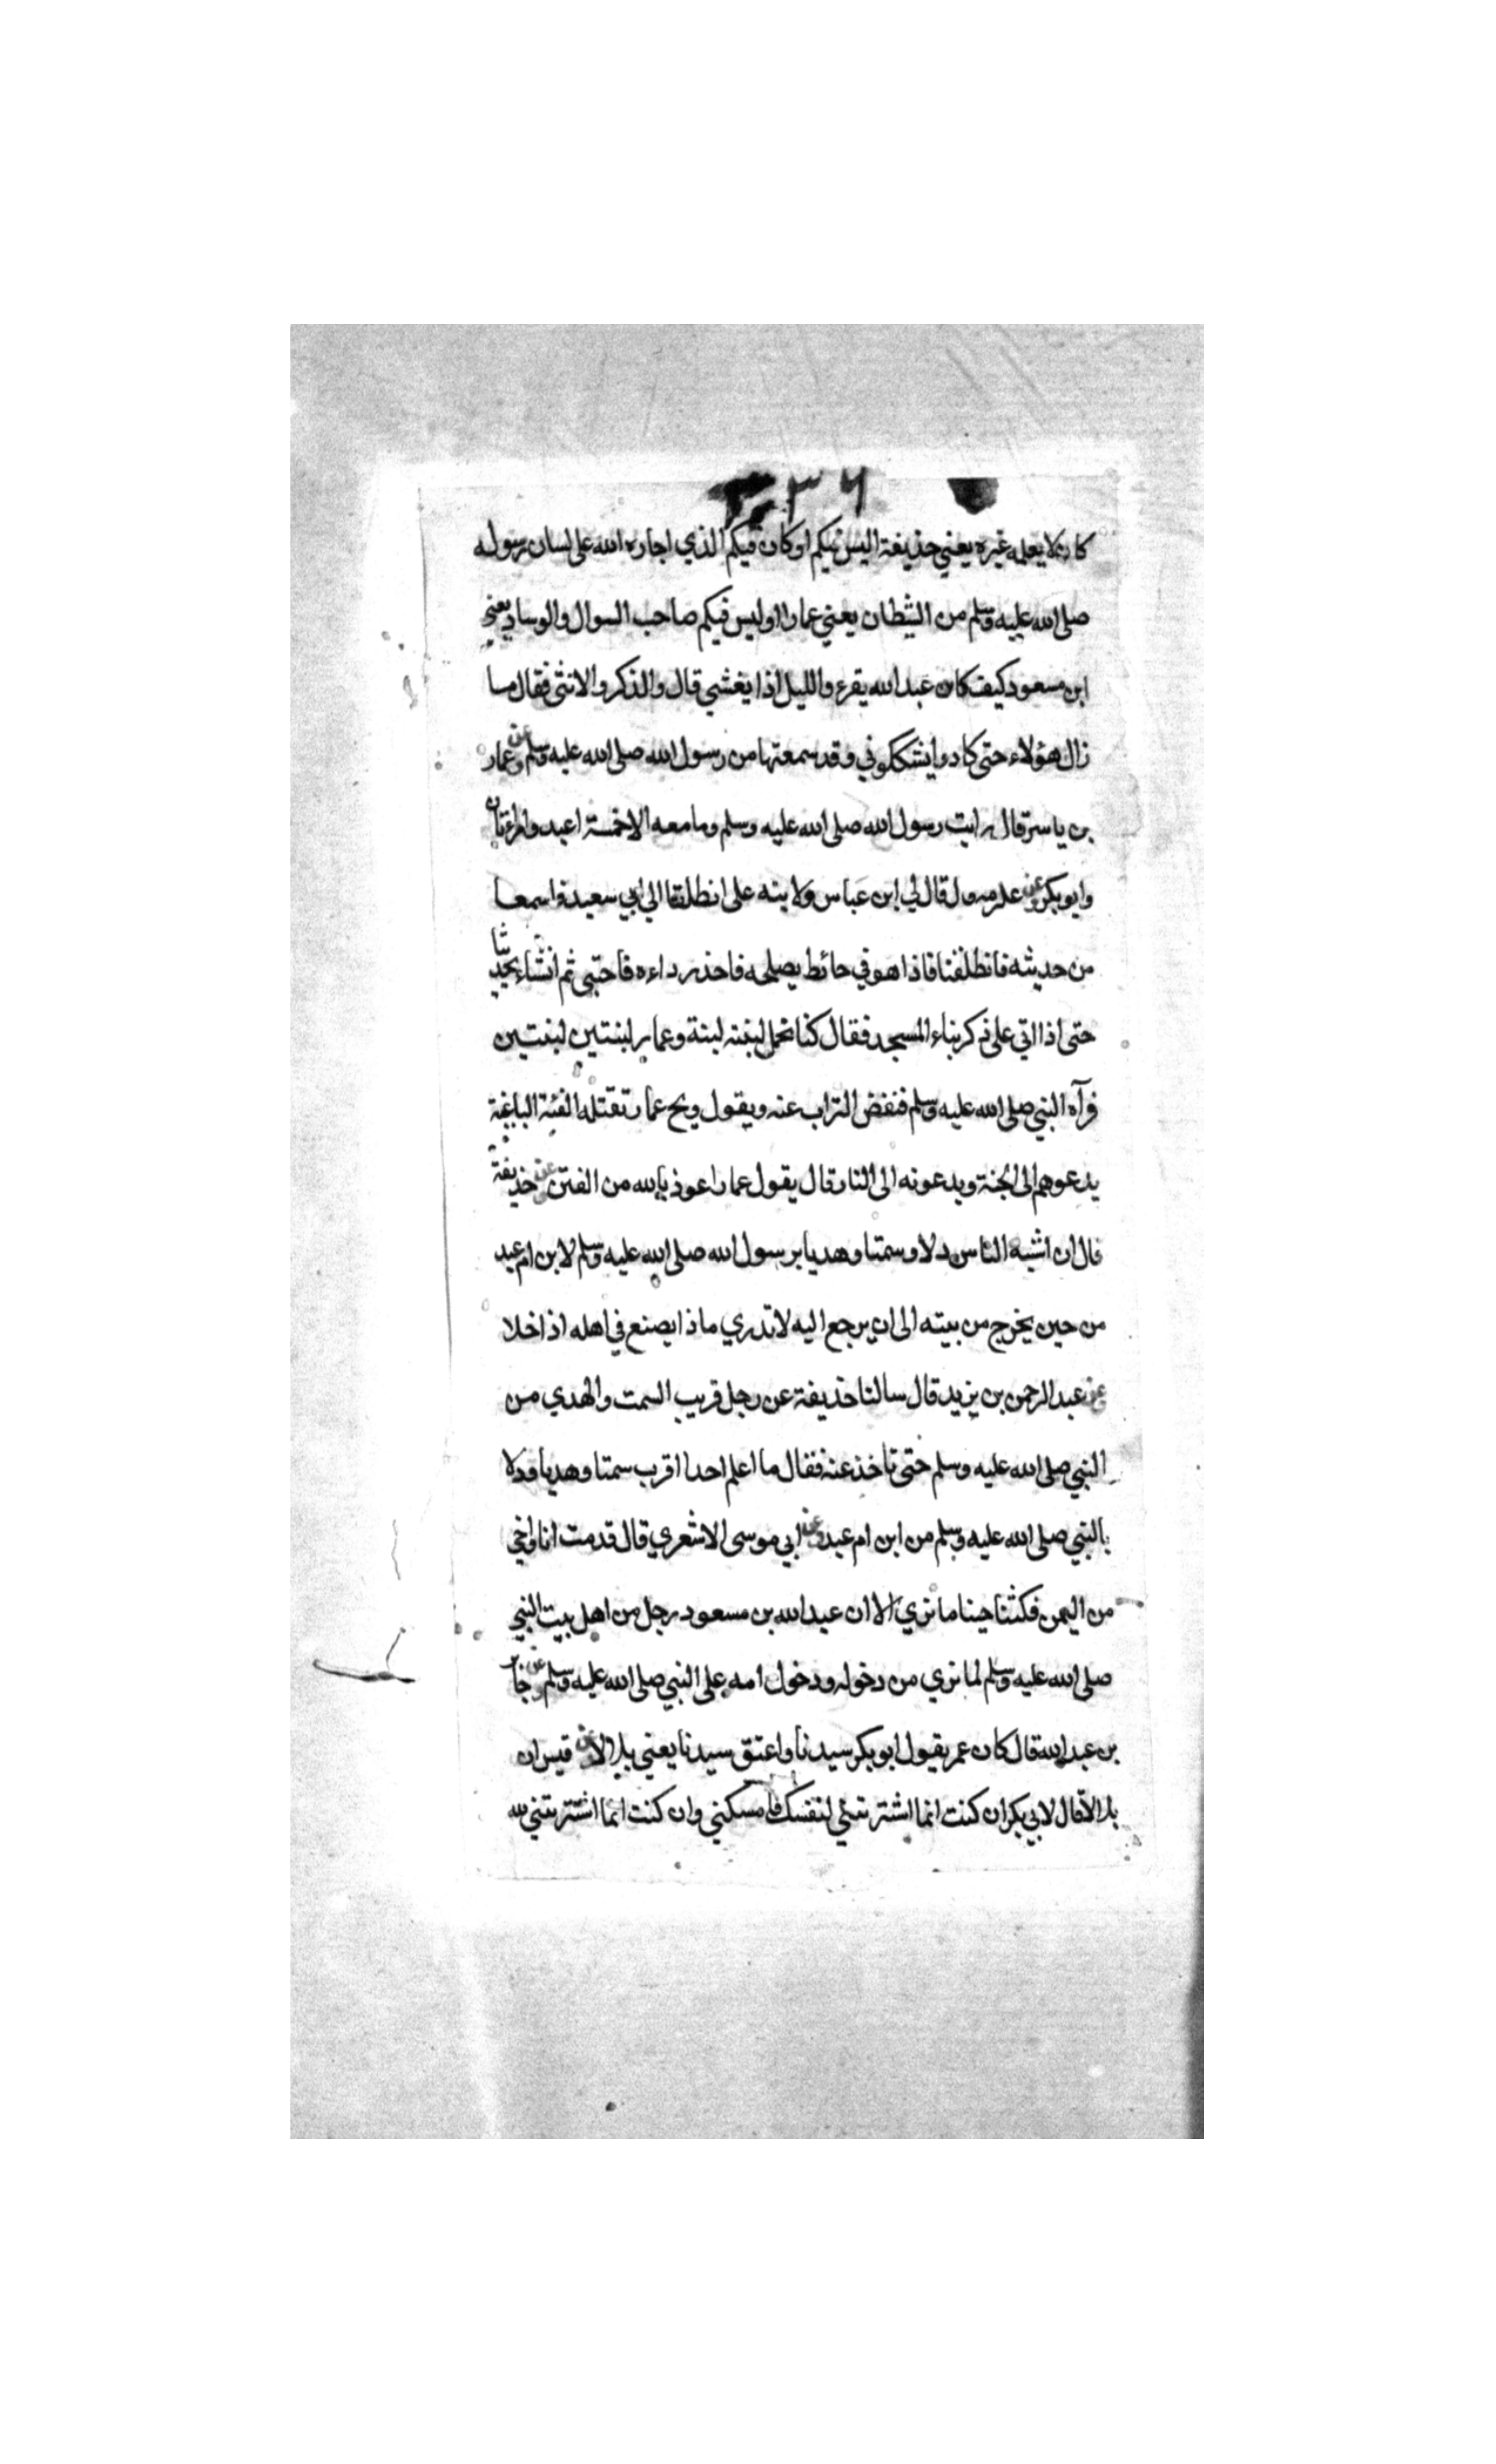 ٣٣٦
كان لا يعلمه غيره يعني حذيفة اليس فيكم او كان فيكم الذي اجاره الله على لسان رسوله
صلى الله عليه وسلم من الشيطان يعني عمارا اوليس فيكم صاحب السوال والوساد يعني
ابن مسعود كيف كان عبد الله يقرء والليل اذا يغشي قال والذكر والانثى فقال ما
زال هؤلاء حتى كادوا يشككوني وقد سمعتها من رسول الله صلى الله عليه وسلم وعن عمار
بن ياسر قال رايت رسول الله صلى الله عليه وسلم وما معه الا خمسة اعبد وامراتان
وابو بكر وعن عكرمه قال قال لي ابن عباس ولابنه على انطلقا الي ابي سعيد فاسمعا
من حديثه فانطلقنا فاذا هو في حائط يصلحه فاخذ رداءه فاحتبى ثم انشاء يحدثنا
حتى اذا اتي على ذكر بناء المسجد فقال كنا نحمل لبنة لبنة وعمار لبنتين لبنتين
فرآه النبي صلى الله عليه وسلم فنفض التراب عنه ويقول ويح عمار تقتله الفئة الباغية
يدعوهم الى الجنة ويدعونه الى النار قال يقول عمار اعوذ بالله من الفتن وعن حذيفة
قال ان اشبه الناس دلا وسمتا وهديا برسول الله صلى الله عليه وسلم لابن ام عبد
من حين يخرج من بيته الى ان يرجع اليه لا تدري ماذا يصنع في اهله اذا خلا
وعن عبد الرحمن بن يزيد قال سالنا حذيفة عن رجل قريب السمت والهدي من
النبي صلى الله عليه وسلم حتى ناخذ عنه فقال ما اعلم احدا اقرب سمتا وهديا ودلا
بالنبي صلى الله عليه وسلم من ابن ام عبد وعن ابي موسى الاشعري قال قدمت انا واخي
من اليمن فمكثنا حينا ما نري الا ان عبد الله بن مسعود رجل من اهل بيت النبي
صلى الله عليه وسلم لما نري من دخوله ودخول امه على النبي صلى الله عليه وسلم وعن جابر
بن عبد الله قال كان عمر يقول ابو بكر سيدنا واعتق سيدنا يعني بلالا وعن قيس ان
بلالا قال لابي بكر ان كنت انما اشتريتني لنفسك فامسكني وان كنت انما اشتريتني لله